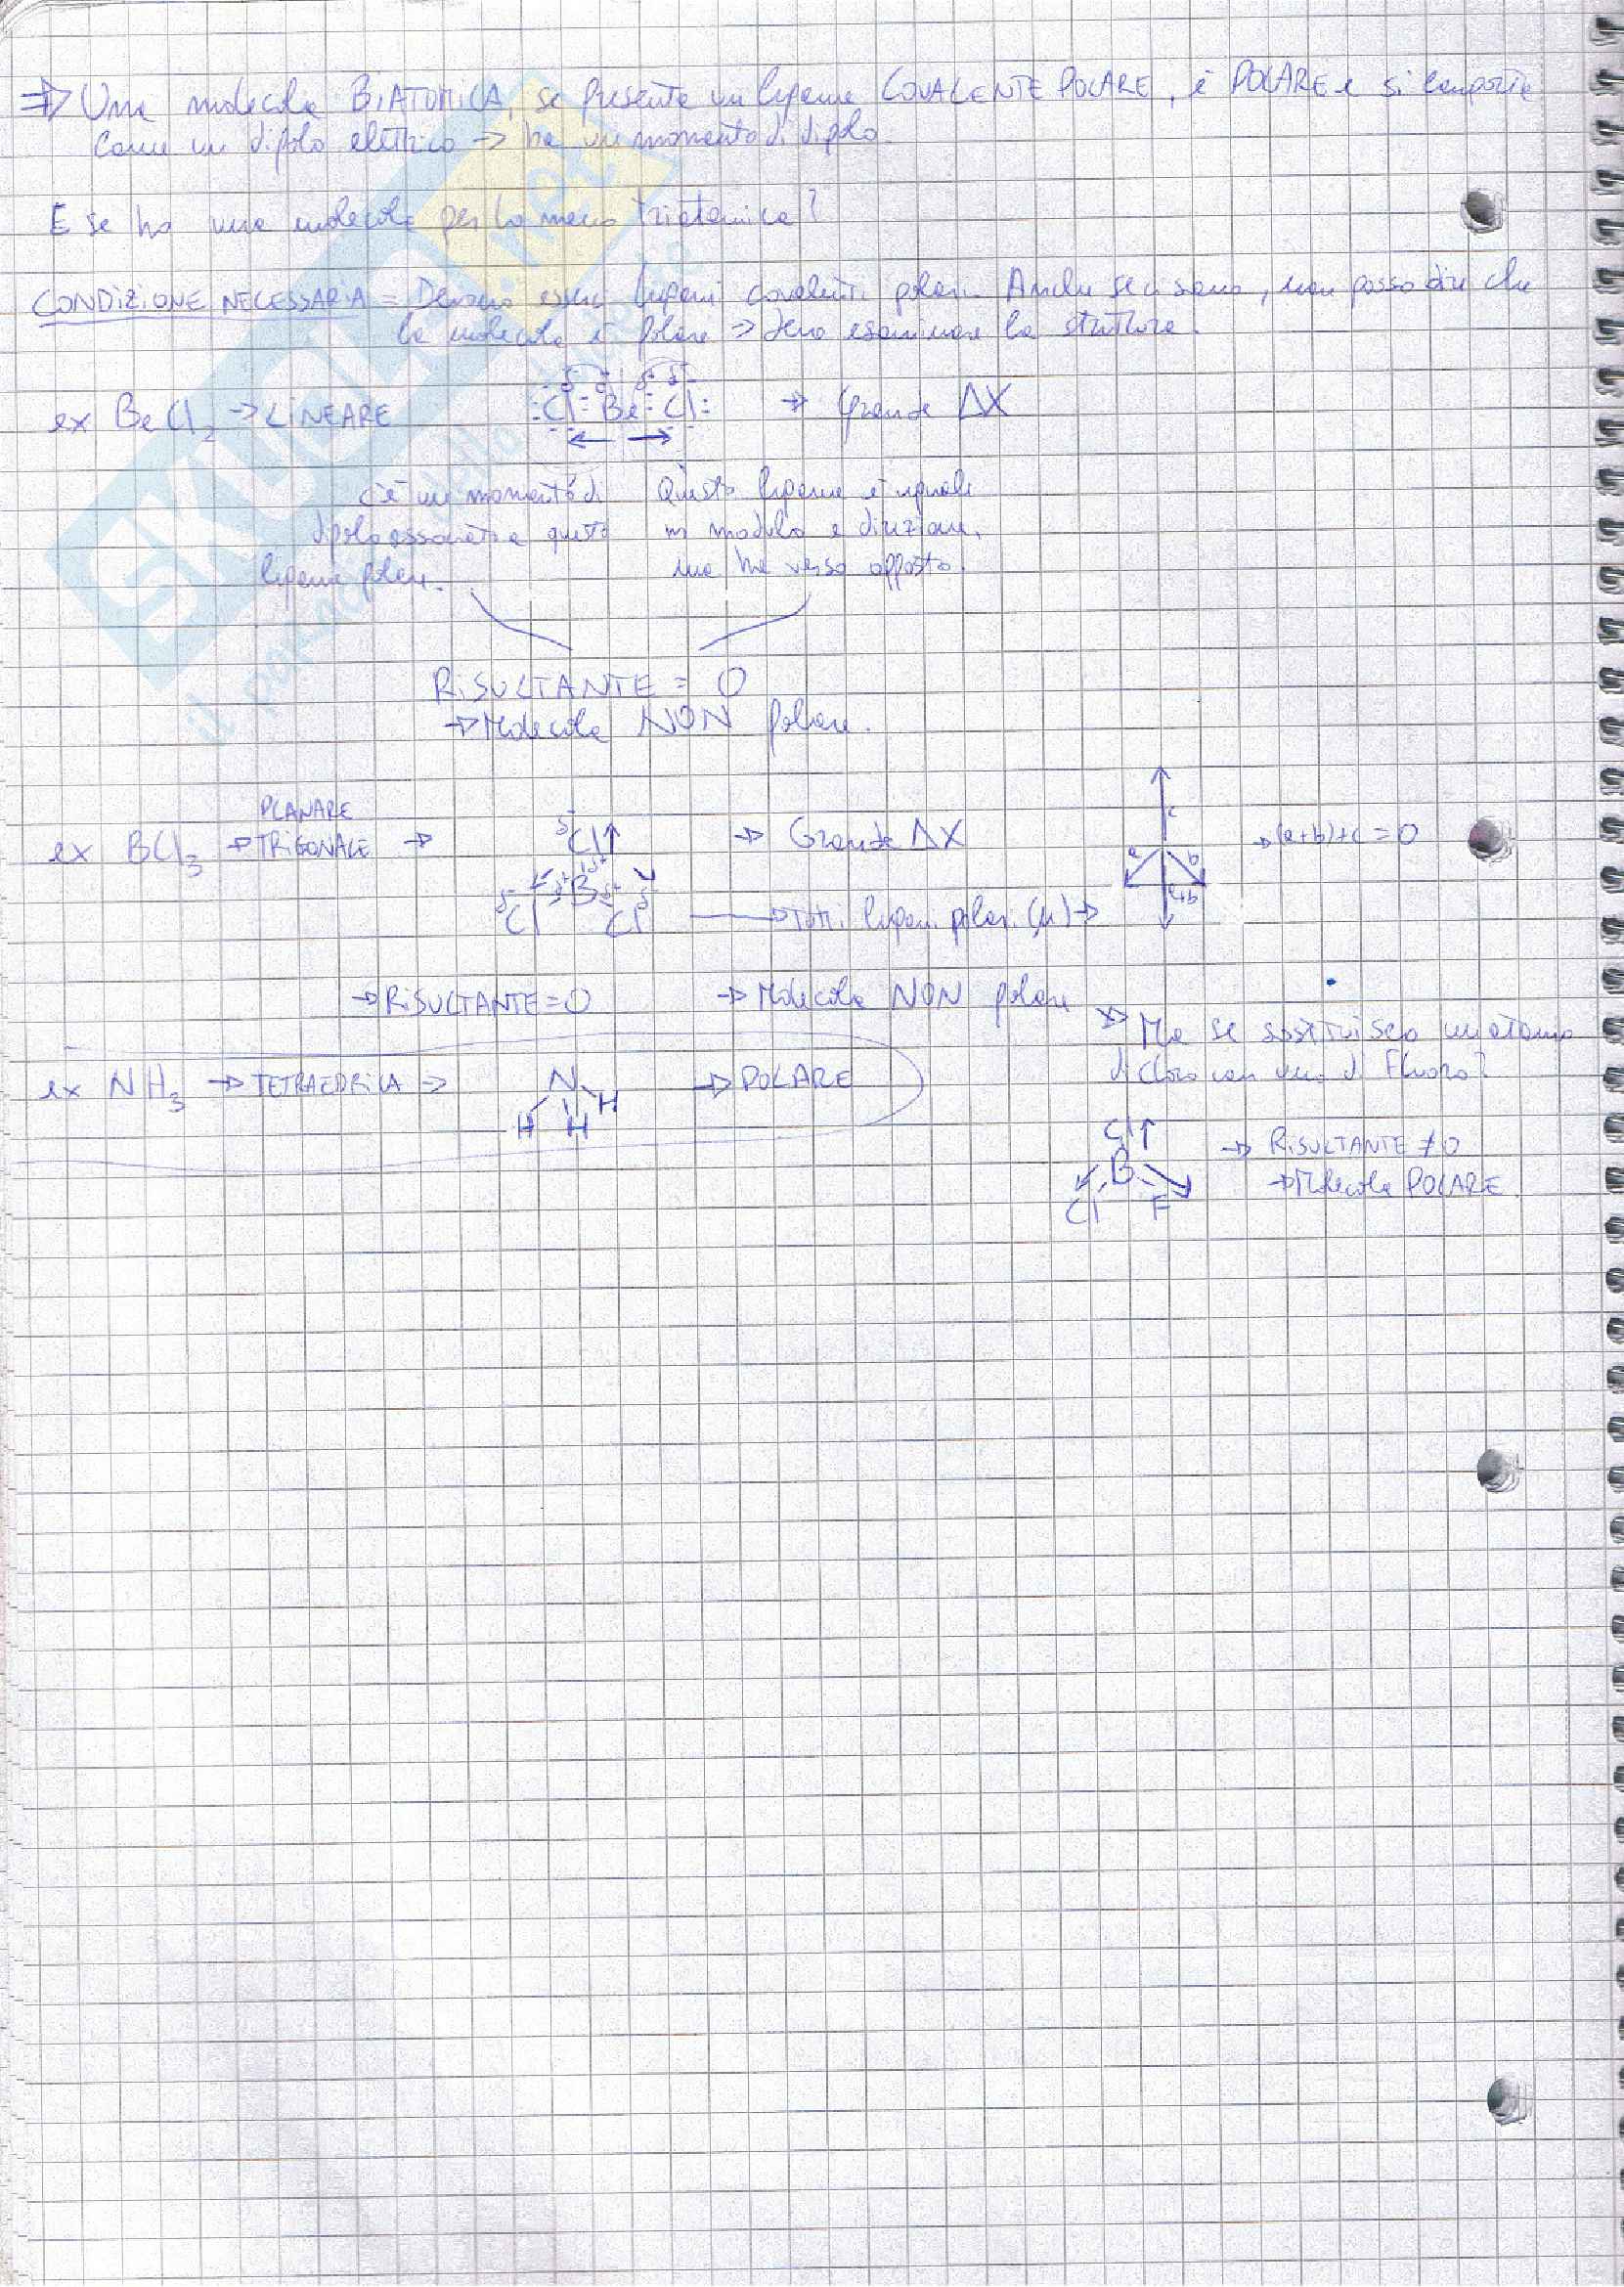 ⇒ Una molecola BIATOMICA, se presenta un legame COVALENTE POLARE, è POLARE e si comporta
come un dipolo elettrico → ha un momento di dipolo.
E se ho una molecola per lo meno triatomica?
CONDIZIONE NECESSARIA = Devono esserci legami covalenti polari. Anche se ci sono, non posso dire che
la molecola è polare ⇒ devo esaminare la struttura.
ex BeCl2 → LINEARE
δ- δ+ δ-
Cl : Be : Cl → Grande ΔX
c'è un momento di
dipolo associato a questo
legame polare.
Questo legame è uguale
in modulo e direzione,
ma ha verso opposto.
RISULTANTE = 0
→ Molecola NON polare.
ex BCl3 → PLANARE
TRIGONALE →
δ- Cl
δ- δ+ B δ+ δ-
Cl Cl
→ Grande ΔX
→ Tutti legami polari (μ) →
c
a b
a+b
→ (a+b)+c = 0
→ RISULTANTE = 0 → Molecola NON polare
→ Ma se sostituisco un atomo
di cloro con uno di Fluoro?
ex NH3 → TETRAEDRICA →
N
H H H
→ POLARE
Cl
B
Cl F
→ RISULTANTE ≠ 0
→ Molecola POLARE
SKUOLA.net